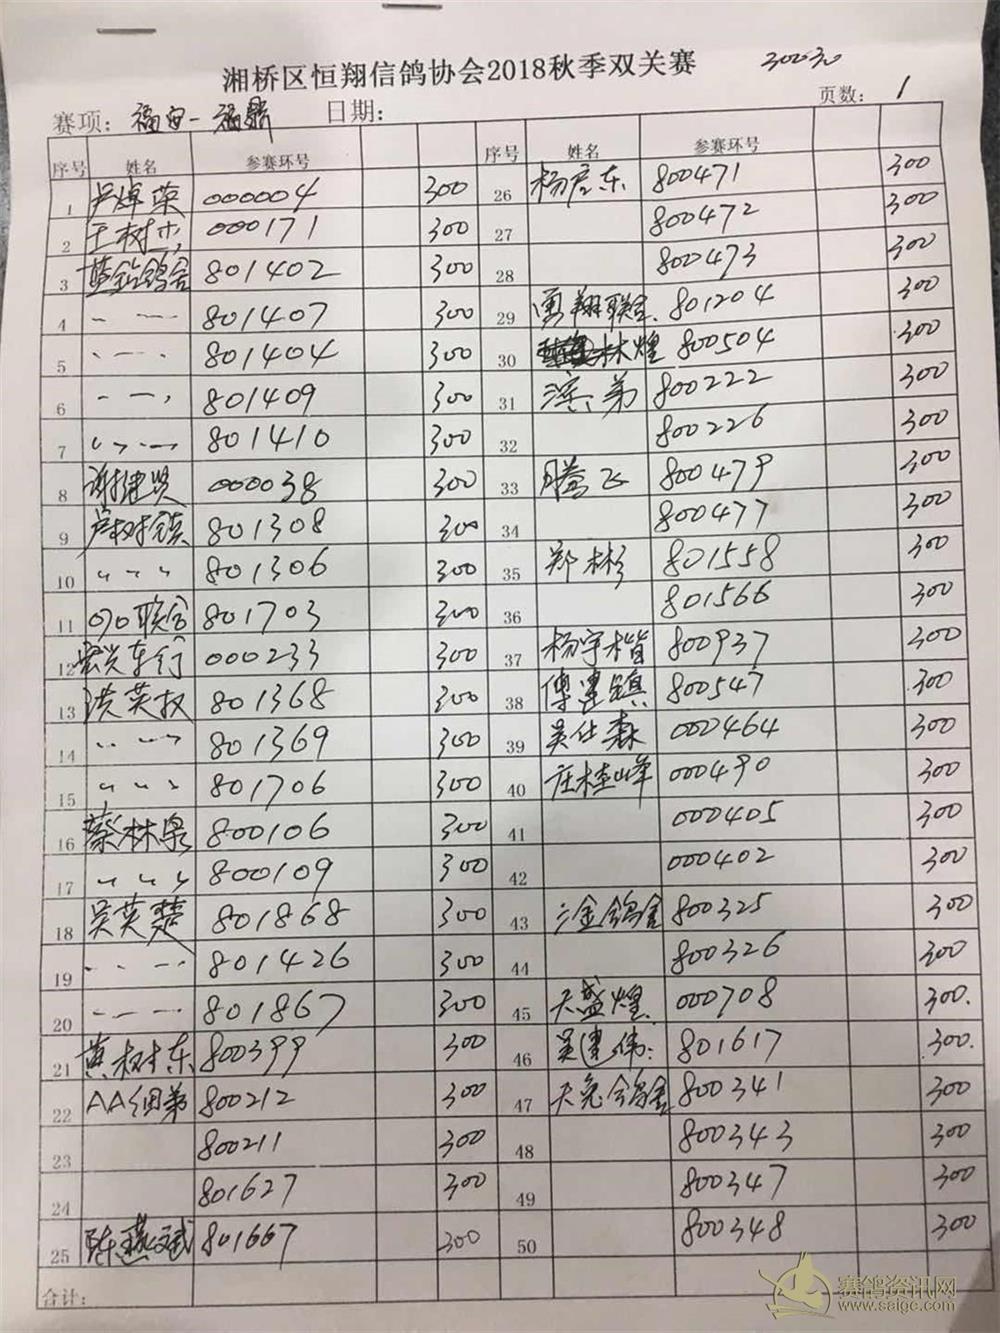 湘桥区恒翔信鸽协会2018秋季双关赛
赛项：福安－福鼎 日期：
页数：1
序号 姓名 参赛环号
1 卢焯荣 000004 300
2 王树 000171 300
3 蓝钻鸽舍 801402 300
4 〃 801407 300
5 〃 801404 300
6 〃 801409 300
7 〃 801410 300
8 谢建贤 000038 300
9 卢树镇 801308 300
10 〃 801306 300
11 090联合 801703 300
12 宏兴车行 000233 300
13 洪英权 801368 300
14 〃 801369 300
15 〃 801706 300
16 蔡林泉 800106 300
17 〃 800109 300
18 吴英楚 801868 300
19 〃 801426 300
20 〃 801867 300
21 黄树东 800399 300
22 AA细弟 800212 300
23 800211 300
24 801627 300
25 陈燕斌 801667 300
合计：
序号 姓名 参赛环号
26 杨启东 800471 300
27 800472 300
28 800473 300
29 勇翔联合 801204 300
30 林煌 800504 300
31 滨弟 800222 300
32 800226 300
33 腾飞 800479 300
34 800477 300
35 郑彬 801558 300
36 801566 300
37 杨宇楷 800937 300
38 傅建镇 800547 300
39 吴仕森 000464 300
40 庄桂峰 000490 300
41 000405 300
42 000402 300
43 六金鸽舍 800325 300
44 800326 300
45 天盛煌 000708 300.
46 吴建伟 801617 300.
47 天兔鸽舍 800341 300
48 800343 300
49 800347 300
50 800348 300
赛鸽资讯网
www.saigc.com